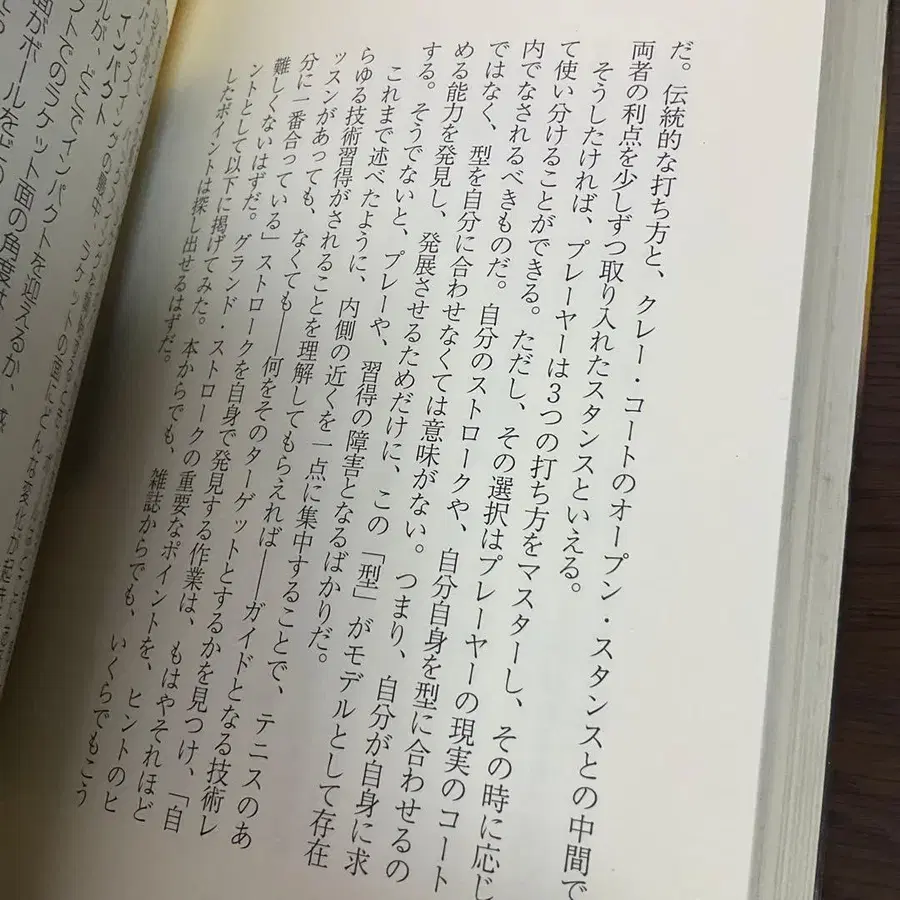 だ。伝統的な打ち方と、クレー・コートのオープン・スタンスとの中間で
両者の利点を少しずつ取り入れたスタンスといえる。
そうしたければ、プレーヤーは3つの打ち方をマスターし、その時に応じ
て使い分けることができる。ただし、その選択はプレーヤーの現実のコート
内でなされるべきものだ。自分のストロークや、自分自身を型に合わせるの
ではなく、型を自分に合わせなくては意味がない。つまり、自分が自身に求
める能力を発見し、発展させるためだけに、この「型」がモデルとして存在
する。そうでないと、プレーや、習得の障害となるばかりだ。
これまで述べたように、内側の近くを一点に集中することで、テニスのあ
らゆる技術習得がされることを理解してもらえれば――ガイドとなる技術レ
ッスンがあっても、なくても――何をそのターゲットとするかを見つけ、「自
分に一番合っている」ストロークを自身で発見する作業は、もはやそれほど
難しくないはずだ。グランド・ストロークの重要なポイントを、ヒントのヒ
ントとして以下に掲げてみた。本からでも、雑誌からでも、いくらでもこう
したポイントは探し出せるはずだ。
スイングの最中、ラケットの面にどんな変化が起き
インパクト
ルが、どこでインパクトを迎えるか、
トでのラケット面の角度は
面がボールをどの